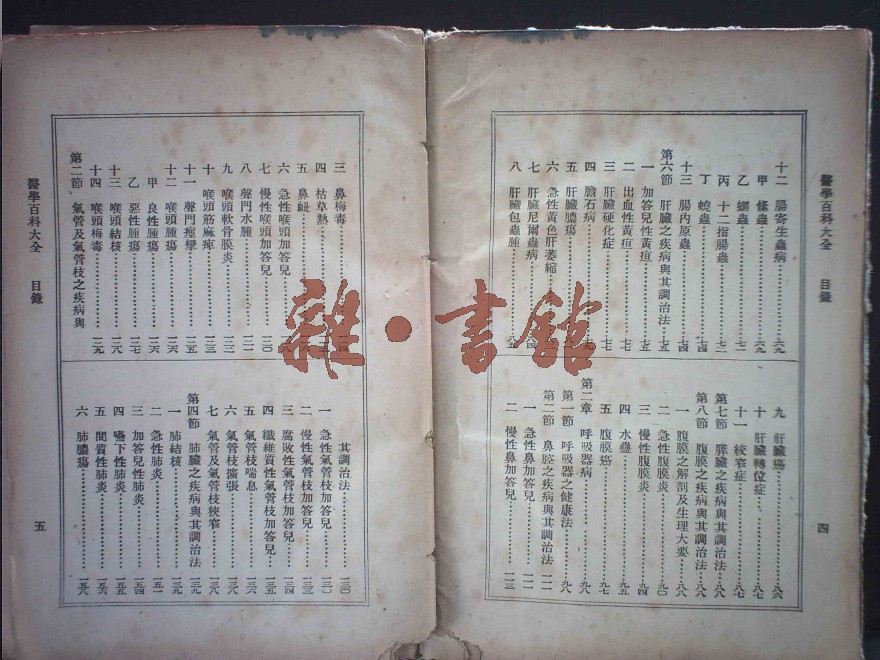 醫學百科大全 目錄
十二 腸寄生蟲病……六九
甲 絛蟲……六九
乙 蛔蟲……七二
丙 十二指腸蟲……七二
丁 蟯蟲……七四
十三 腸內原蟲……七四
第六節 肝臟之疾病與其調治法……七五
一 加答兒性黃疸……七五
二 出血性黃疸……七七
三 肝臟硬化症……七七
四 膽石病
五 肝臟膿瘍
六 急性黃色肝萎縮
七 肝臟尼爾蟲病
八 肝臟包蟲腫……八五
九 肝臟癌……八六
十 肝臟轉位症……八七
十一 絞窄症……八七
第七節 膵臟之疾病與其調治法……八八
第八節 腹膜之疾病與其調治法……八八
一 腹膜之解剖及生理大要……八八
二 急性腹膜炎……九〇
三 慢性腹膜炎……九四
四 水蠱……九五
五 腹膜癌……九七
第二章 呼吸器病
第一節 呼吸器之健康法……九八
第二節 鼻腔之疾病與其調治法
一 急性鼻加答兒
二 慢性鼻加答兒
四
醫學百科大全 目錄
三 鼻梅毒
四 枯草熱
五 鼻衄
六 急性喉頭加答兒
七 慢性喉頭加答兒……一二〇
八 聲門水腫……一二一
九 喉頭軟骨膜炎……一二二
十 喉頭筋麻痺……一二三
十一 聲門痙攣……一二五
十二 喉頭腫瘍……一二六
甲 良性腫瘍……一二六
乙 惡性腫瘍……一二七
十三 喉頭結核……一二八
十四 喉頭梅毒……一二九
第三節 氣管及氣管枝之疾病與
其調治法……一三〇
一 急性氣管枝加答兒……一三〇
二 慢性氣管枝加答兒……一三二
三 腐敗性氣管枝加答兒……一三四
四 纖維質性氣管枝加答兒……一三五
五 氣管枝喘息……一三六
六 氣管枝擴張
七 氣管及氣管枝狹窄
第四節 肺臟之疾病與其調治法……一三九
一 肺結核……一三九
二 急性肺炎……一五一
三 加答兒性肺炎……一五四
四 嚥下性肺炎……一五五
五 間質性肺炎……一五六
六 肺膿瘍……一五八
五
雜·書館